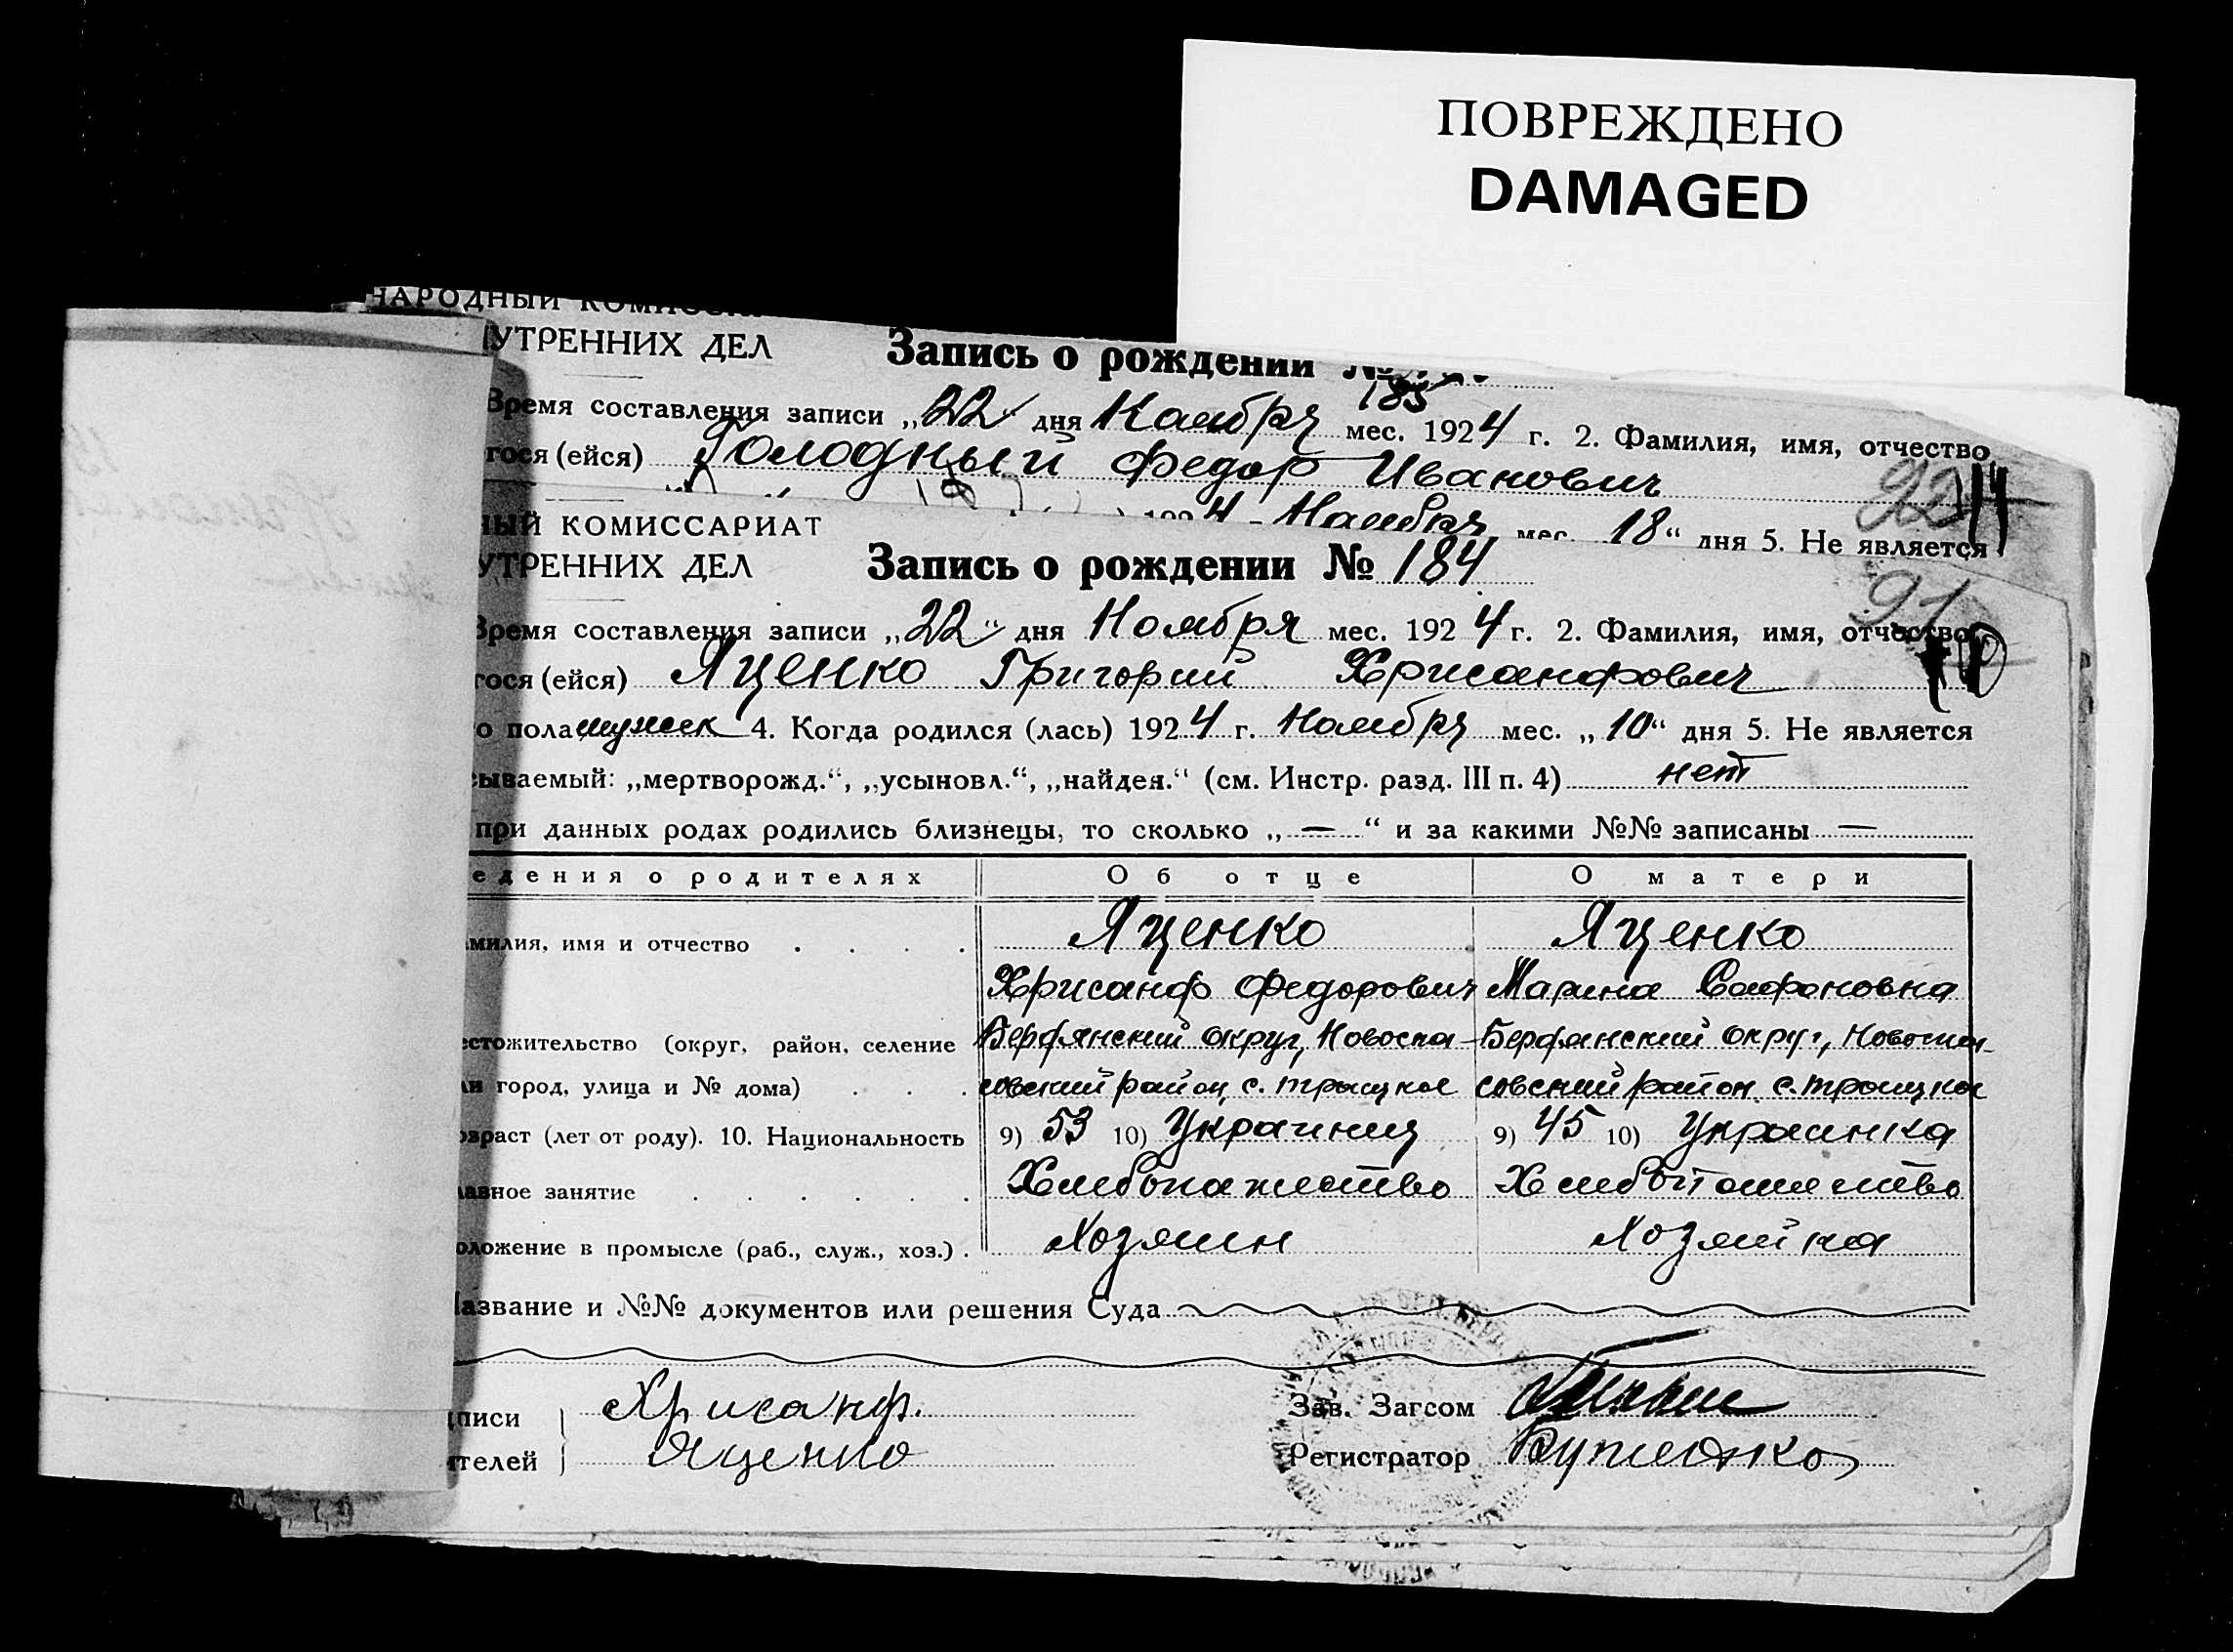 ПОВРЕЖДЕНО
DAMAGED
НАРОДНЫЙ
УТРЕННИХ ДЕЛ
Запись о рождении № 185
Время составления записи „22“ дня Ноября мес. 1924 г. 2. Фамилия, имя, отчество
гося (ейся) Голодный Федор Иванович
92
4 Ноября мес. 18“ дня 5. Не является
ЫЙ КОМИССАРИАТ
УТРЕННИХ ДЕЛ
Запись о рождении № 184
91
Время составления записи „22“ дня Ноября мес. 1924 г. 2. Фамилия, имя, отчество
гося (ейся) Яценко Григорий Хрисанфович
о пола мужск 4. Когда родился (лась) 1924 г. Ноября мес. „10“ дня 5. Не является
сываемый: „мертворожд.“, „усыновл.“, „найден.“ (см. Инстр. разд. III п. 4) нет
при данных родах родились близнецы, то сколько „—“ и за какими №№ записаны —
едения о родителях Об отце О матери
амилия, имя и отчество Яценко Яценко
Хрисанф Федорович Марина Сафоновна
естожительство (округ, район, селение Бердянский округ, Новоспа- Бердянский округ, Новоспа-
ли город, улица и № дома) совский район, с. Троицкое совский район с. Троицкое
озраст (лет от роду). 10. Национальность 9) 53 10) Украинец 9) 45 10) Украинка
лавное занятие Хлебопашество Хлебопашество
оложение в промысле (раб., служ., хоз.) Хозяин Хозяйка
Название и №№ документов или решения Суда
дписи Хрисанф. Зав. Загсом
ителей Яценко Регистратор